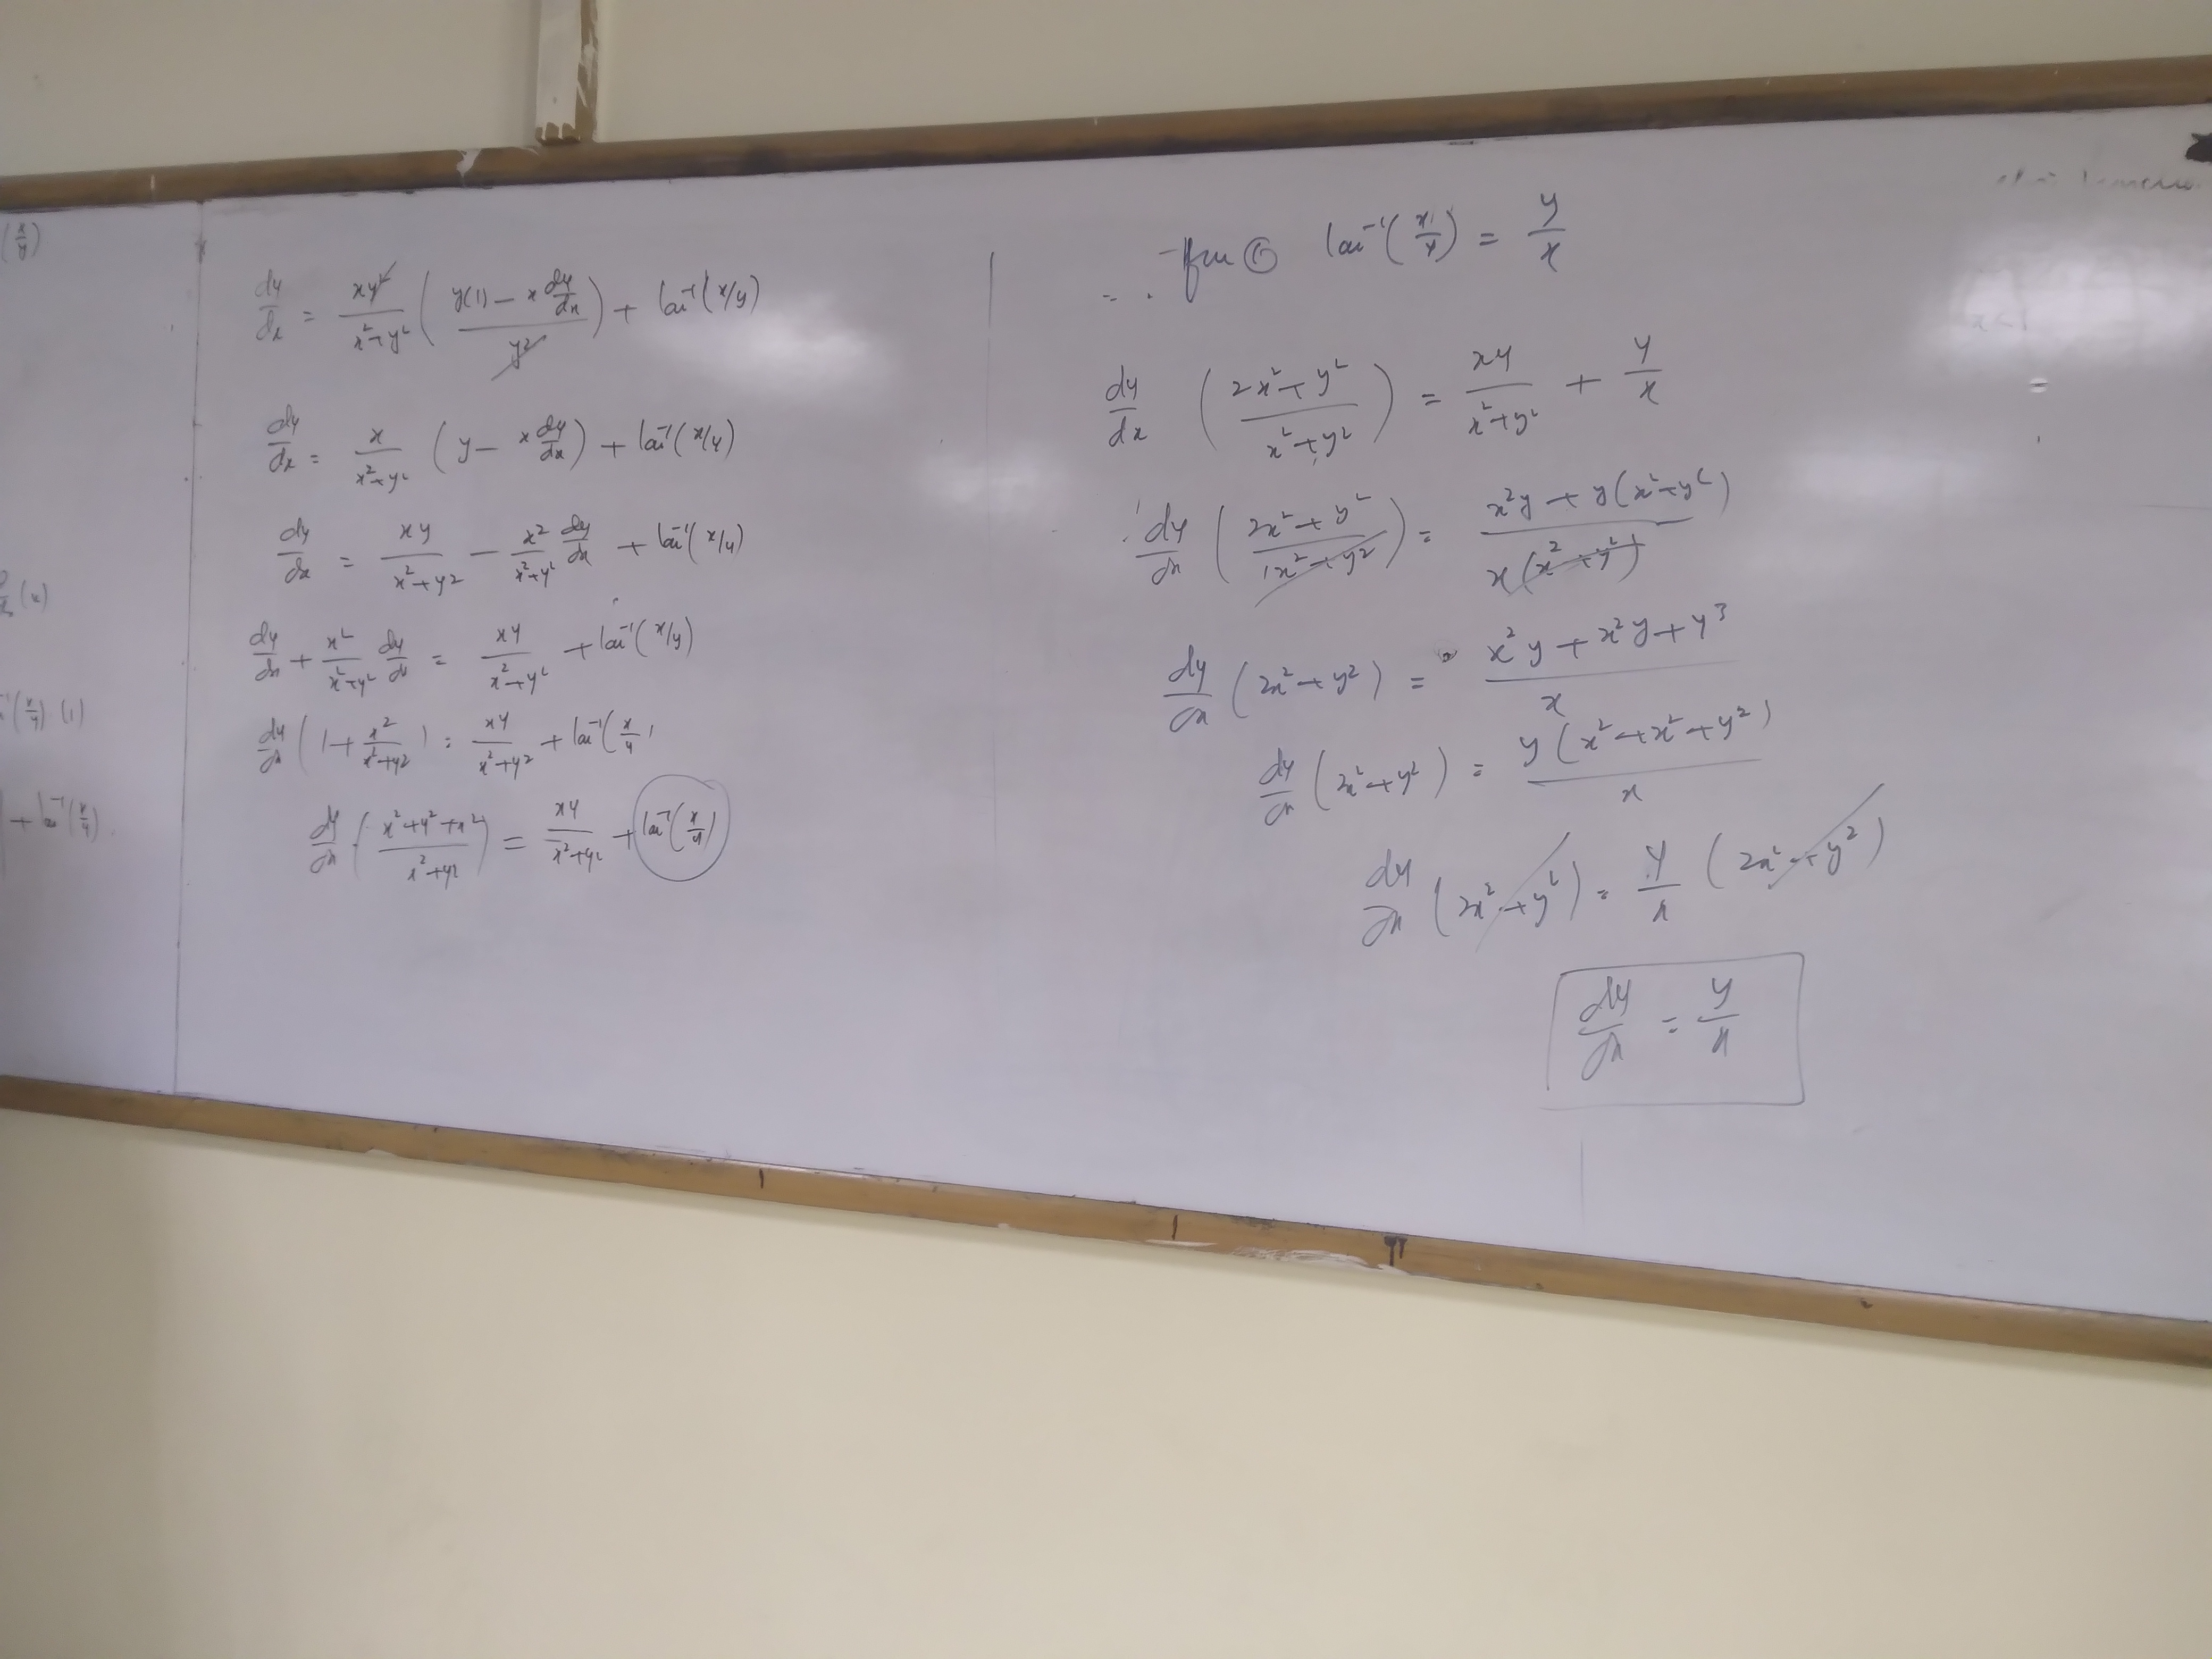 (x/y)
(x)
(x/y) · (1)
+ tan⁻¹(x/y)
dy/dx = xy²/(x²+y²) ( (y(1) − x dy/dx) / y² ) + tan⁻¹(x/y)
dy/dx = x/(x²+y²) ( y − x dy/dx ) + tan⁻¹(x/y)
dy/dx = xy/(x²+y²) − x²/(x²+y²) dy/dx + tan⁻¹(x/y)
dy/dx + x²/(x²+y²) dy/dx = xy/(x²+y²) + tan⁻¹(x/y)
dy/dx ( 1 + x²/(x²+y²) ) = xy/(x²+y²) + tan⁻¹(x/y)
dy/dx · ( (x²+y²+x²)/(x²+y²) ) = xy/(x²+y²) + tan⁻¹(x/y)
from ① tan⁻¹(x/y) = y/x
dy/dx ( (2x²+y²)/(x²+y²) ) = xy/(x²+y²) + y/x
dy/dx ( (2x²+y²)/(x²+y²) ) = (x²y + y(x²+y²)) / (x(x²+y²))
dy/dx (2x²+y²) = (x²y + x²y + y³)/x
dy/dx (2x²+y²) = y(x²+x²+y²)/x
dy/dx (2x²+y²) = y/x (2x²+y²)
dy/dx = y/x